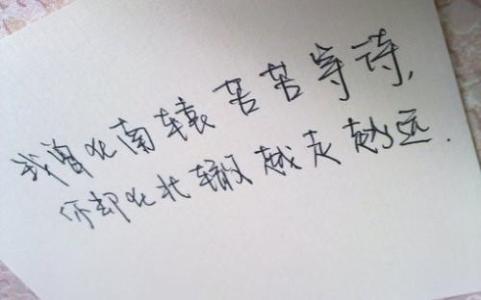 我曾化南辕苦苦等待，
你却化北辙越走越远.